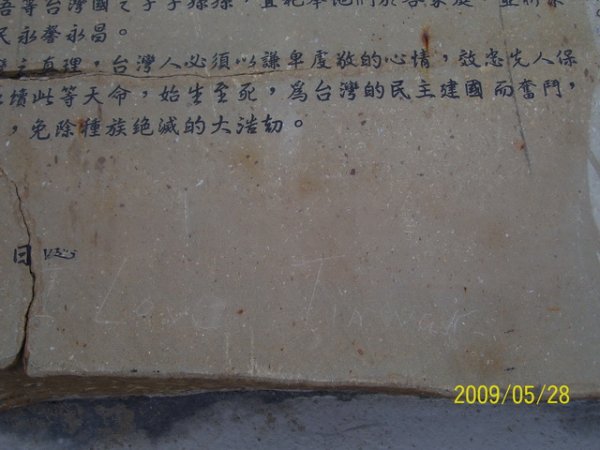 吾等台灣國之子子孫孫，宜祀奉他們於各家庭，並祈保
民永馨永昌。
真理，台灣人必須以謙卑虔敬的心情，效忠先人保
續此等天命，始生至死，為台灣的民主建國而奮鬥，
，免除種族絕滅的大浩劫。
日
Love Taiwan
2009/05/28